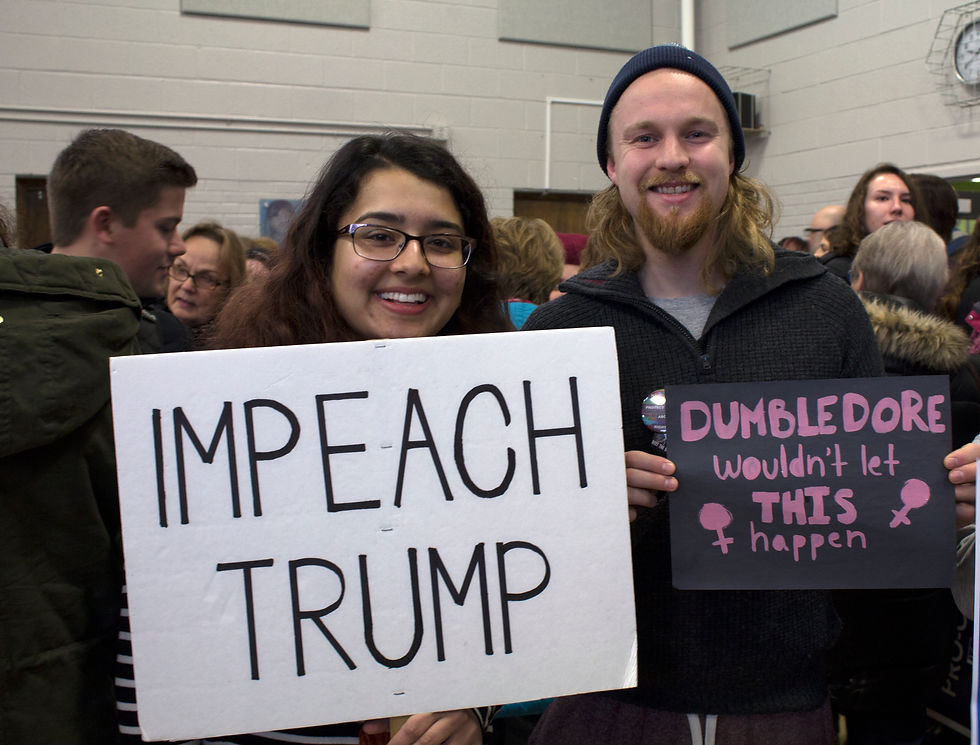 IMPEACH
TRUMP
DUMBLEDORE
wouldn't let
THIS
happen
PRO-